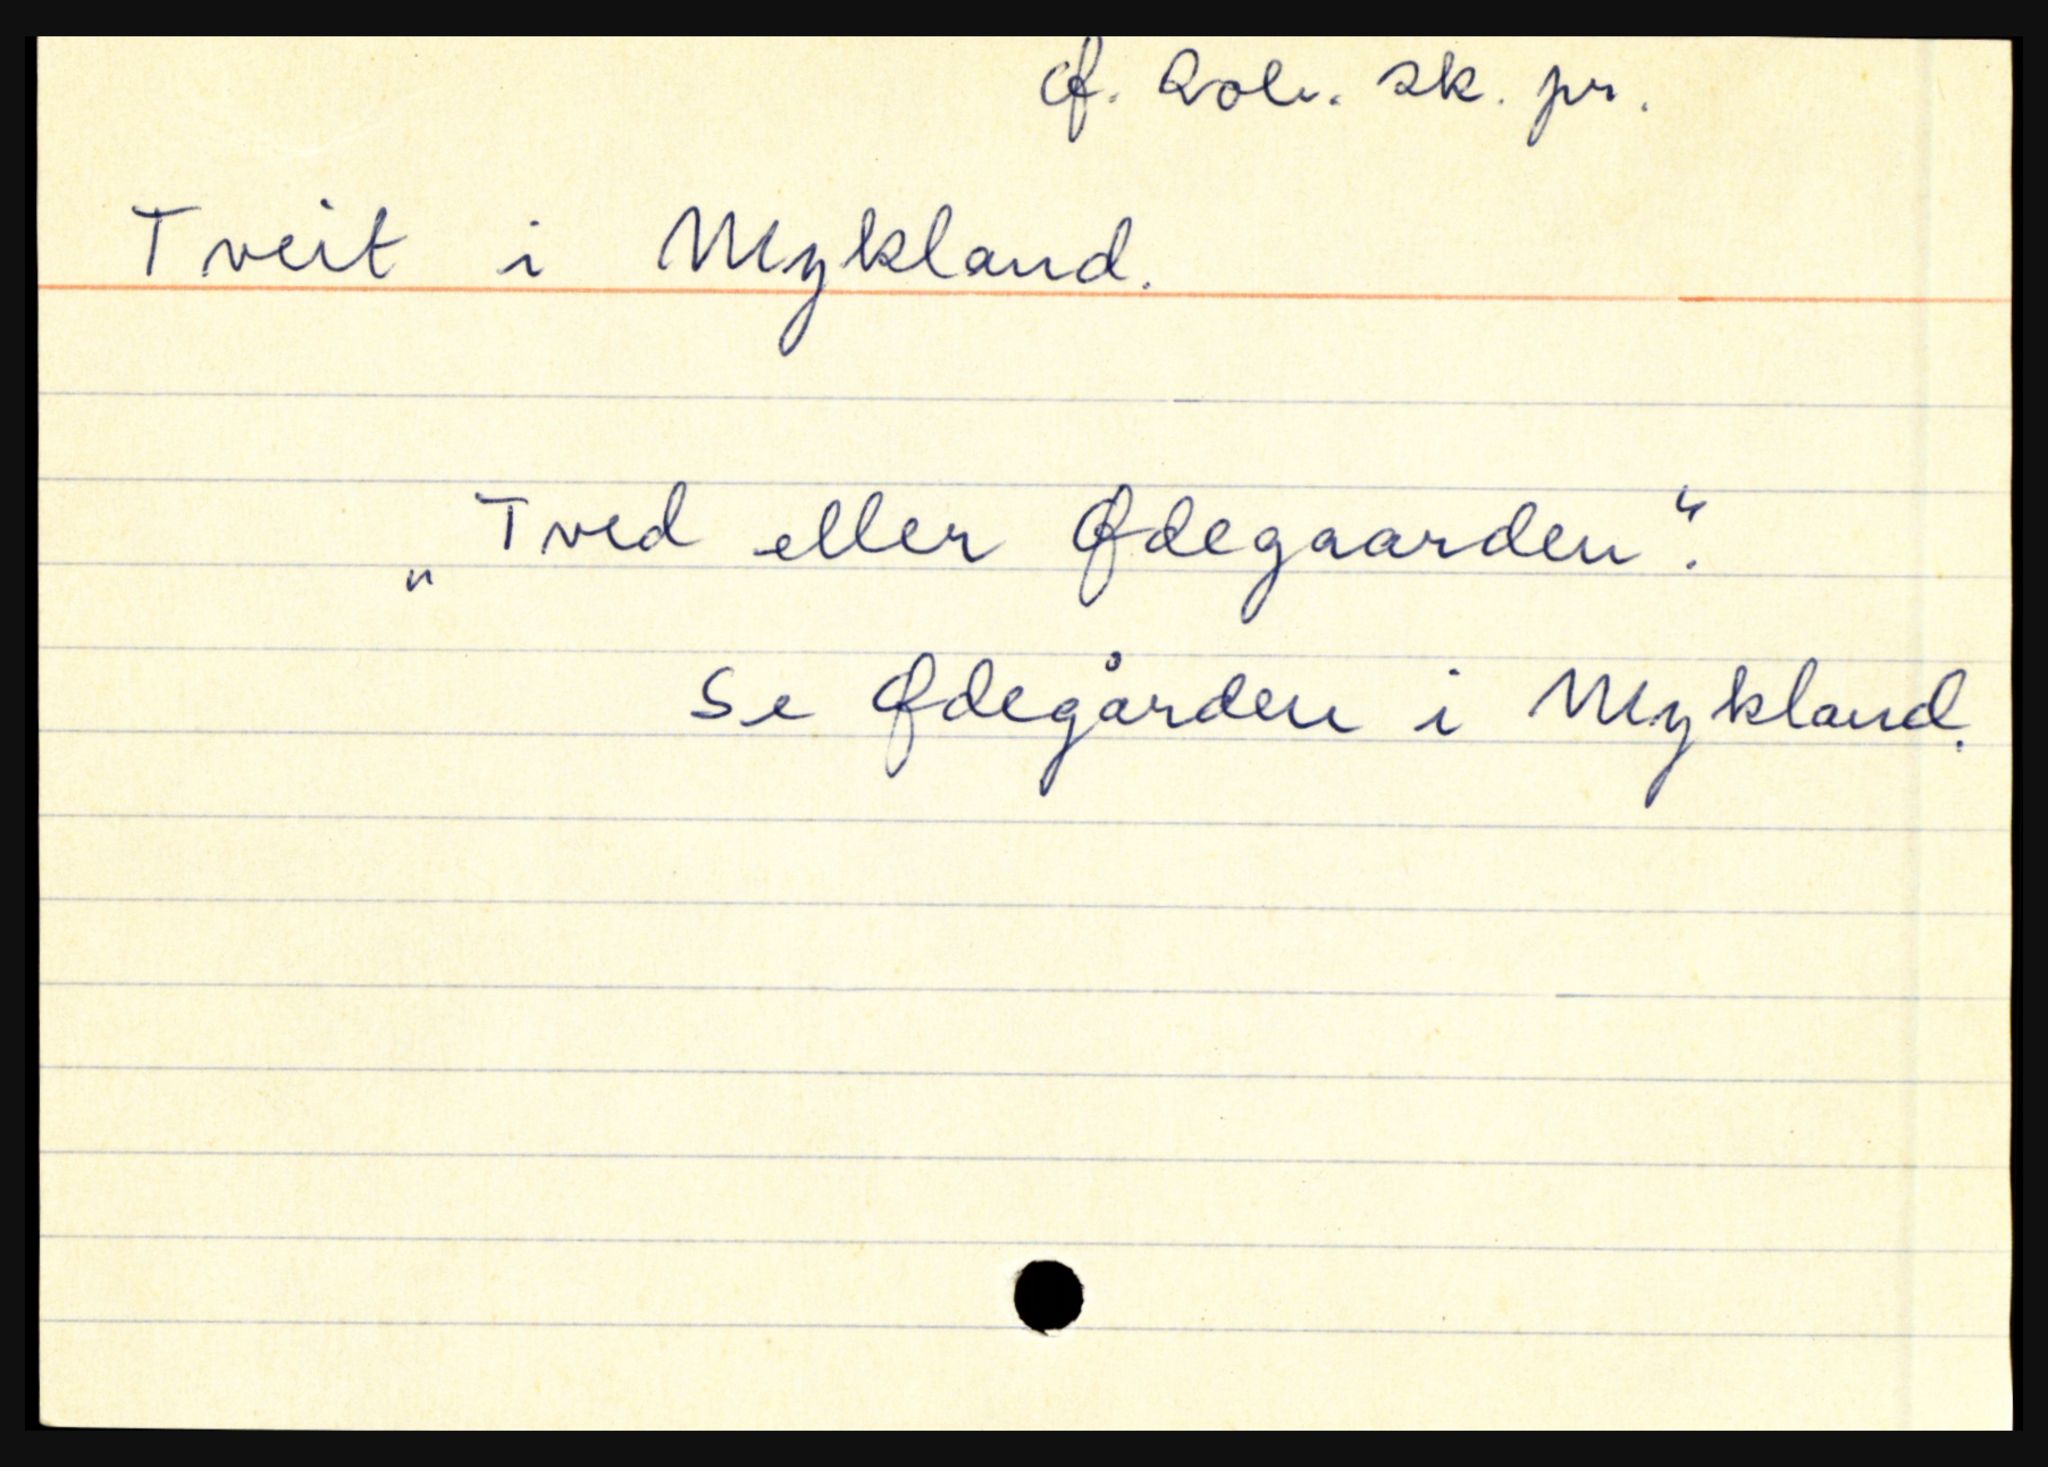 cf. sk. pr.
Tveit i Mykland.
„Tved eller Ødegaarden“.
Se Ødegården i Mykland.